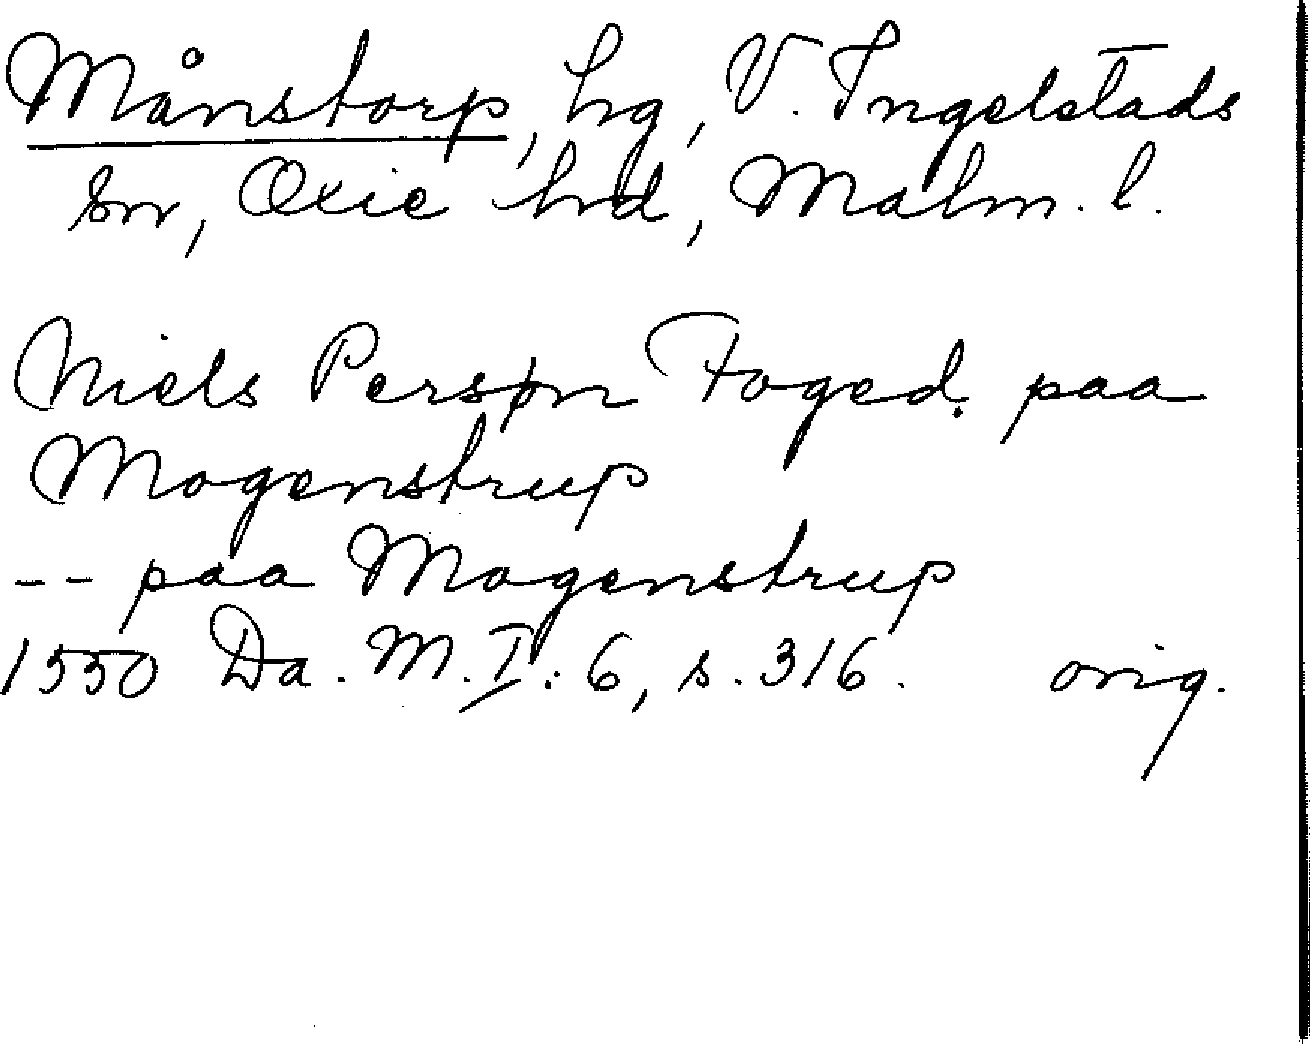 Månstorp, hg, V. Ingelstads
sn, Oxie hd, Malm. l.
Niels Persøn Foged paa
Mogenstrup
-- paa Mogenstrup
1550 Da. M. I: 6, s. 316. orig.